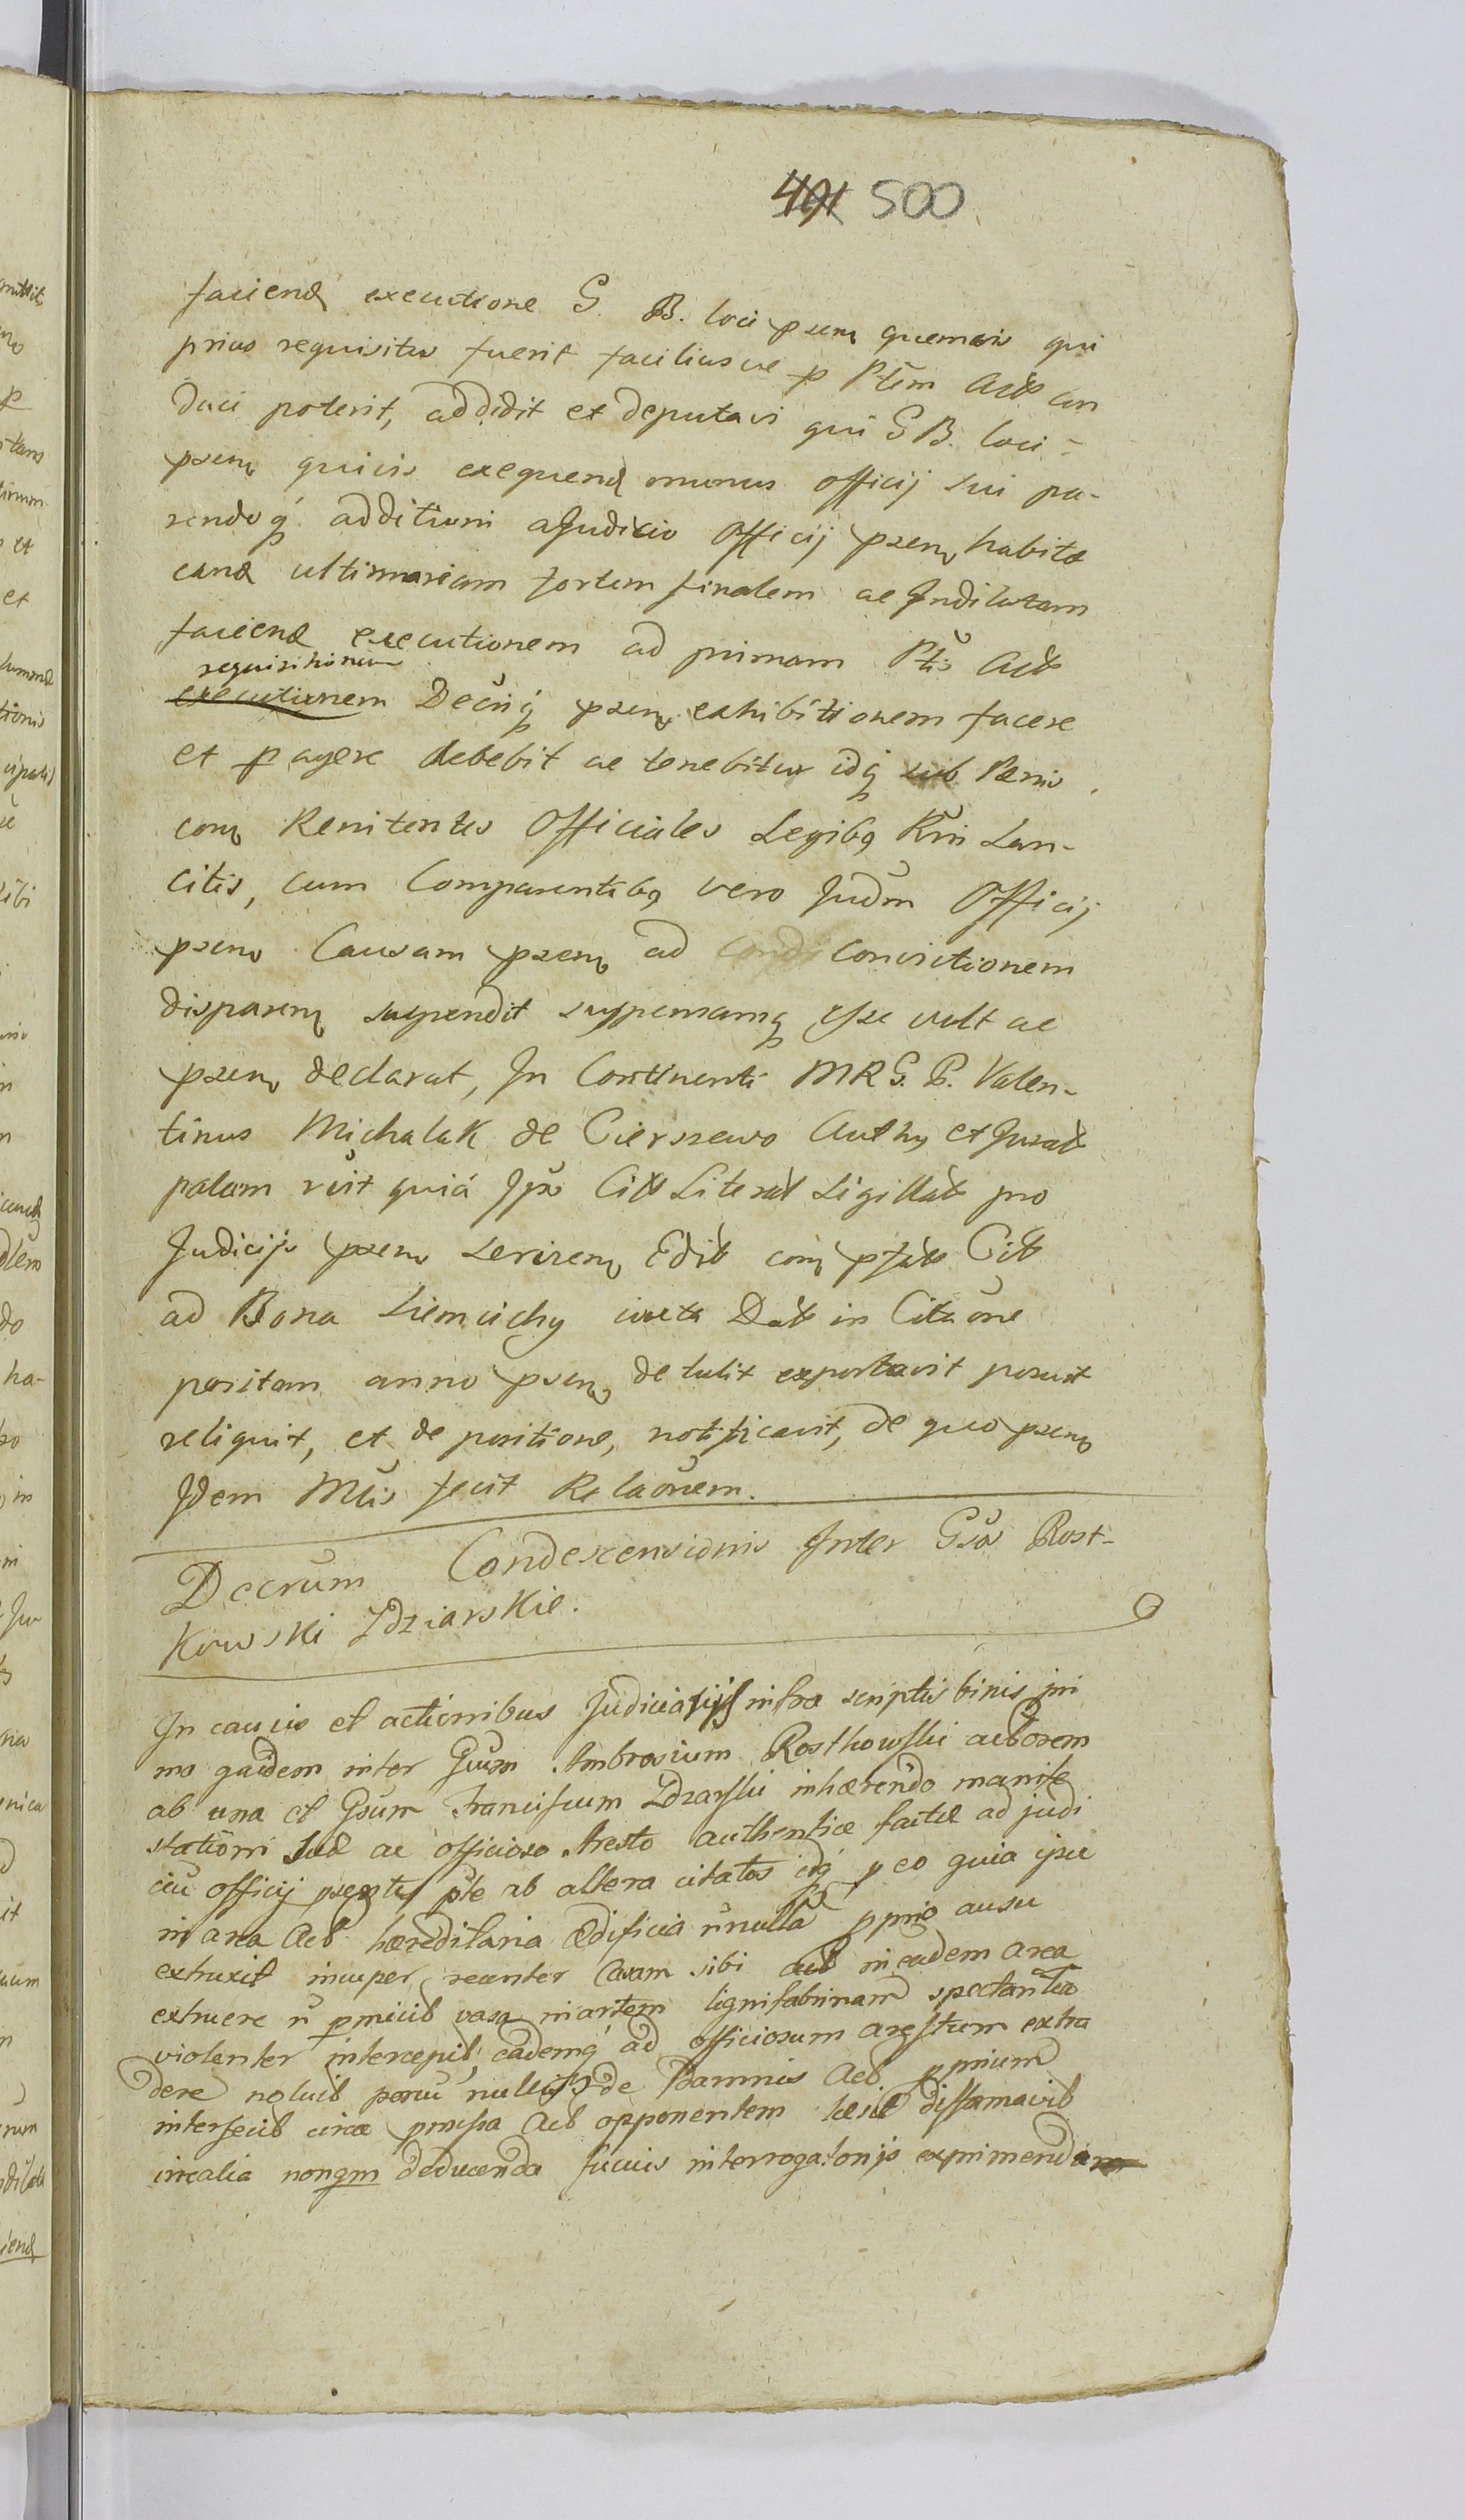 491 500
faciend executione G. B. loci psen quemvis qui
prius requisitus fuerit faciliusve p Ptem Act
duci poterit, addidit et deputavi qui G B. loci
psen quivis exequend munus officij sui pa-
rendoq additioni a Judicio Officij psen habitæ
cand ultimariam fortem finalem ac Indilatam
faciend executionem ad primam Ptis Act
requisitionem
executionem Decriq psen exhibitionem facere
et pagere debebit ac tenebitur idq sub Pænis
con Renitentes Officiales Legibq Rni San-
citis, cum Comparentibq vero Judm Officij
psens Causam psen ad Convictionem
disparen suspendit suspensamq esse vult ac
psen declarat, In Continenti MRG. P. Valen-
tinus Michalak de Cierszewo Authq et Jurat
palam rcvit quiá Ipse Citt Literat Sigillat pro
Judicijs psens servien Edit con pfat Cit
ad Bona Siemichy iuxta Dat in Citaone
positam anno psen detulit exportavit posuit
reliquit, et de positione, notificavit, de quo psen
Idem Mlis fecit Relaonem.
Decrum Condescensionis Inter Gsos Rost-
Kowski Zdziarskie.
In causis et actionibus Judiciarijs infra scriptis binis pri
mo quidem inter Gsum Ambrosium Rostkowski actorem
ab una et Gsum Franciscum Zdzarski inhærendo manife
stationi Suæ ac officioso Aresto authenticæ factæ ad judi
ciu officij psentis pte ab altera citatos idq p eo quia ipse
in area Act hæreditaria ædificia nnulla pprio ausu
extruxit insuper recenter Casam sibi act in eadem area
extruere n pmisit vasa in artem lignifabrinam spectantia
violenter intercepit, eademq ad officiosum arestum extra
dere noluit de Damnis Act pprium
interfecit circa pmissa Act opponentem læsit diffamavit
circalia nonqm deducenda fusius interrogatorijs exprimenda